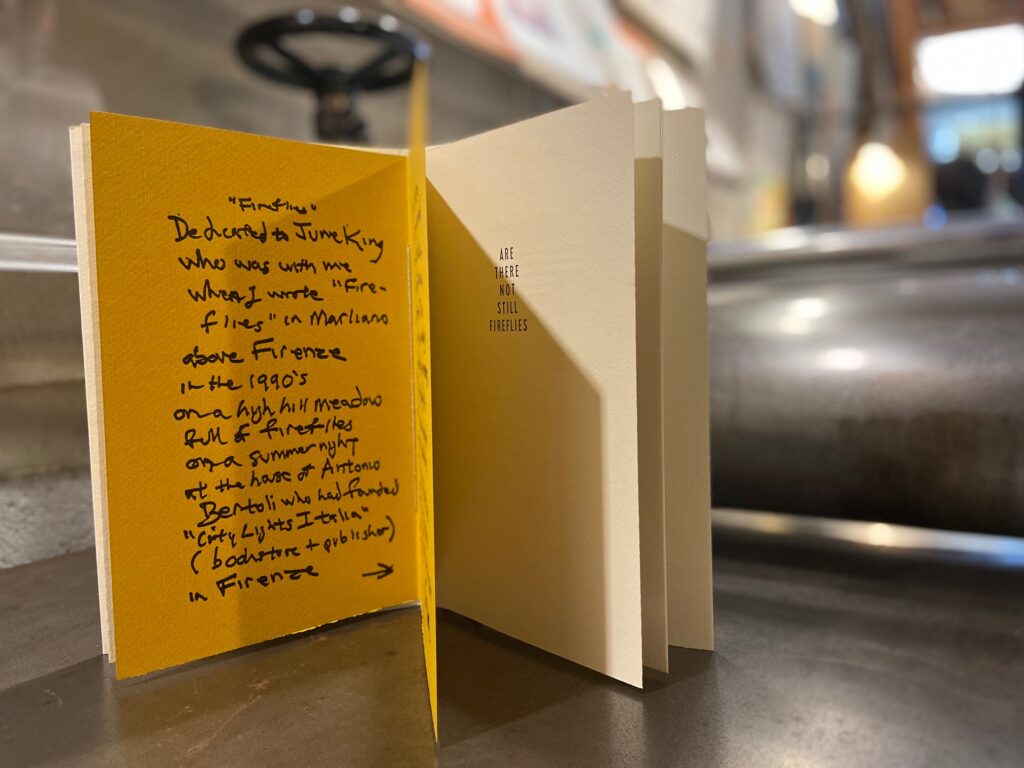 "Fireflies"
Dedicated to June King
who was with me
when I wrote "Fire-
flies" in Marliano
above Firenze
in the 1990's
on a high hill meadow
full of fireflies
on a summer night
at the house of Antonio
Bertoli who had founded
"City Lights Italia"
(bookstore + publisher)
in Firenze →
ARE
THERE
NOT
STILL
FIREFLIES